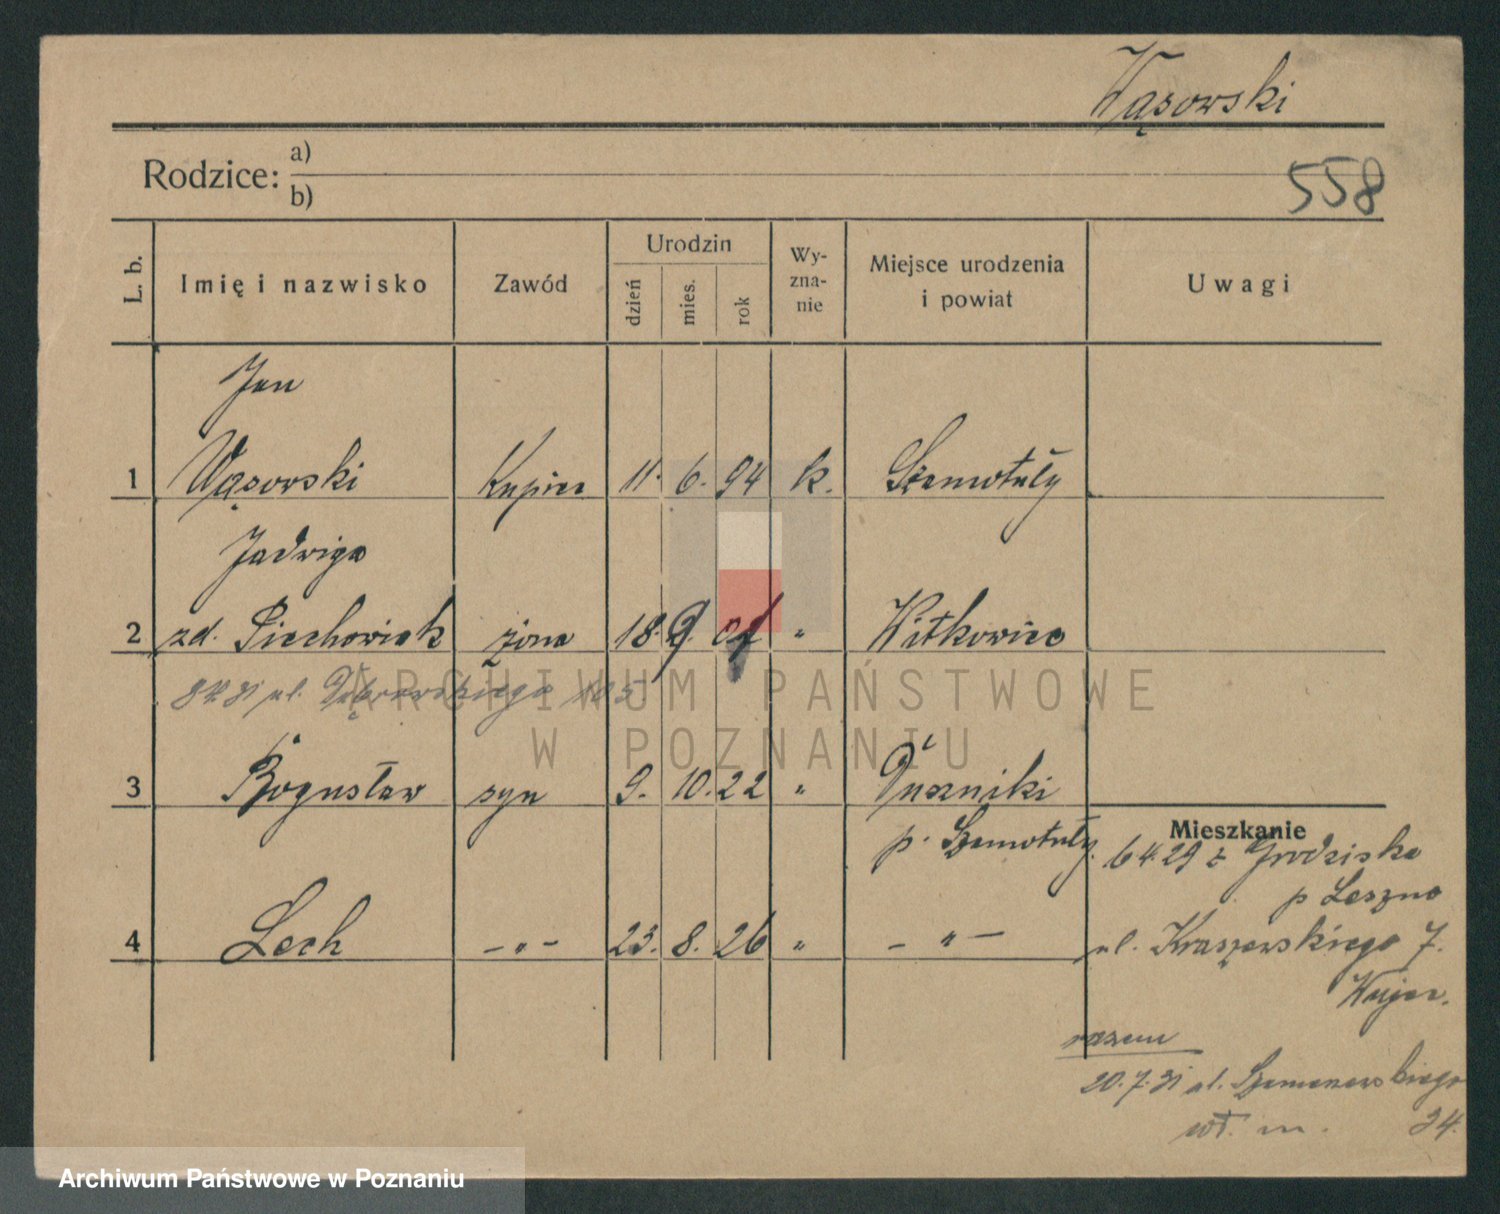 Wąsowski
Rodzice: a)
b)
558
L. b.
Imię i nazwisko
Zawód
Urodzin
dzień
mies.
rok
Wy-
zna-
nie
Miejsce urodzenia
i powiat
Uwagi
Jan
1 Wąsowski Kupiec 11. 6. 94 k. Szamotuły
Jadwiga
2 zd. Piechowiak żona 18. 9. 01 " Witkowice
ul. Dąbrowskiego 105
3 Bogusław syn 9. 10. 22 " Duszniki
p. Szamotuły
4 Lech - " - 23. 8. 26 " - " -
Mieszkanie
6 4. 29 z Grodziska
p Leszno
ul. Kraszewskiego 7.
razem
20. 7. 31 ul. Szamarzewskiego
wł. m. 24.
ARCHIWUM PAŃSTWOWE
W POZNANIU
Archiwum Państwowe w Poznaniu